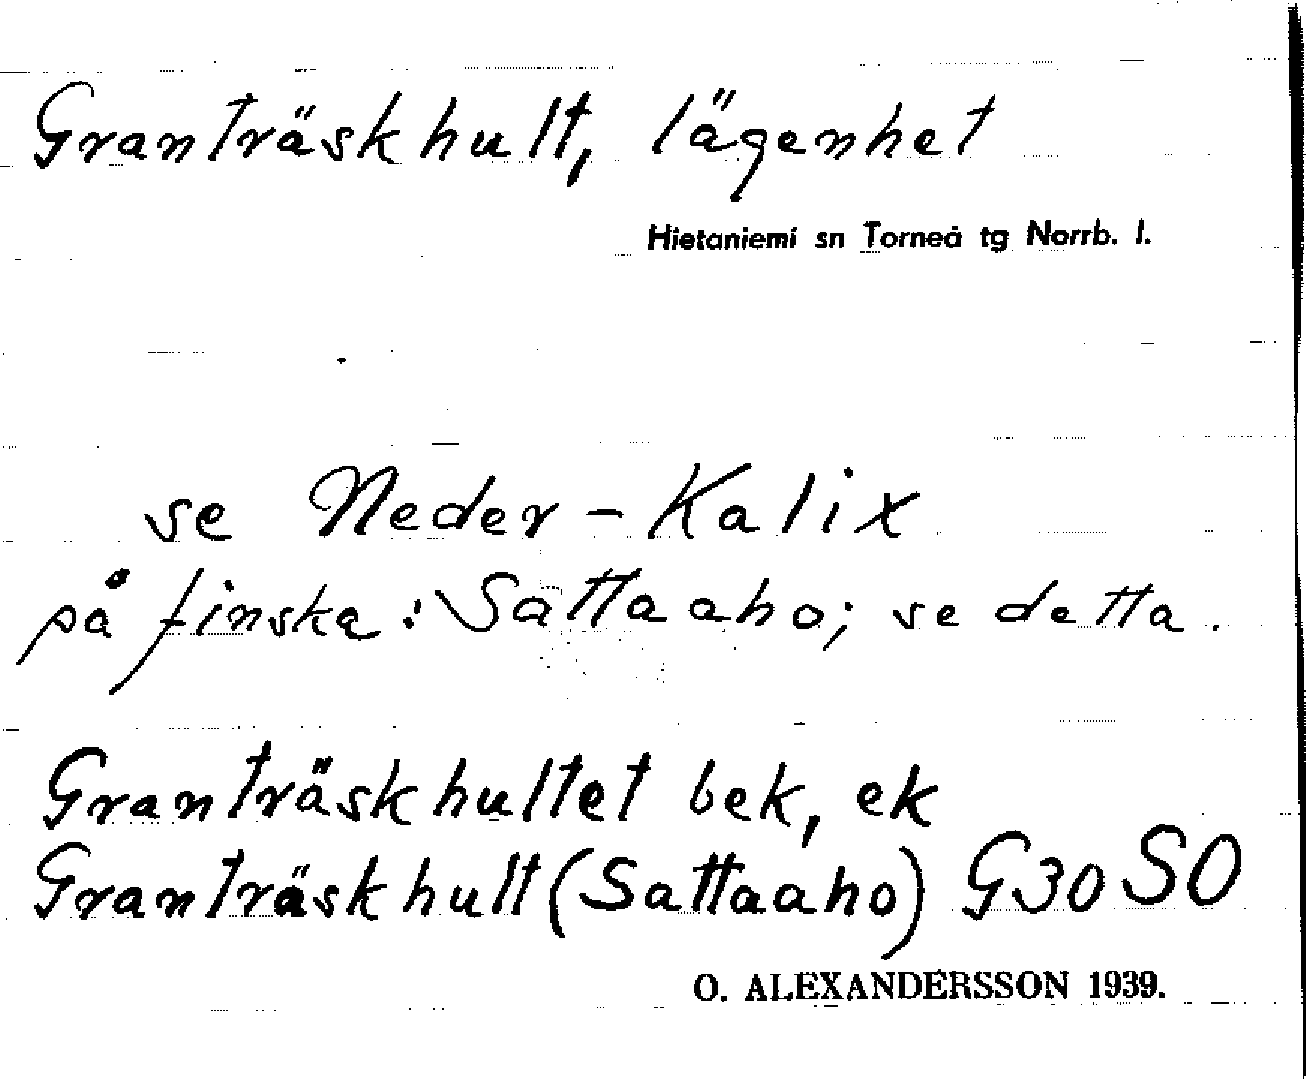 Granträskhult, lägenhet
Hietaniemi sn Torneå tg Norrb. l.
se Neder-Kalix
på finska: Sattaaho; se detta.
Granträskhultet bek, ek
Granträskhult (Sattaaho) G30SO
O. ALEXANDERSSON 1939.